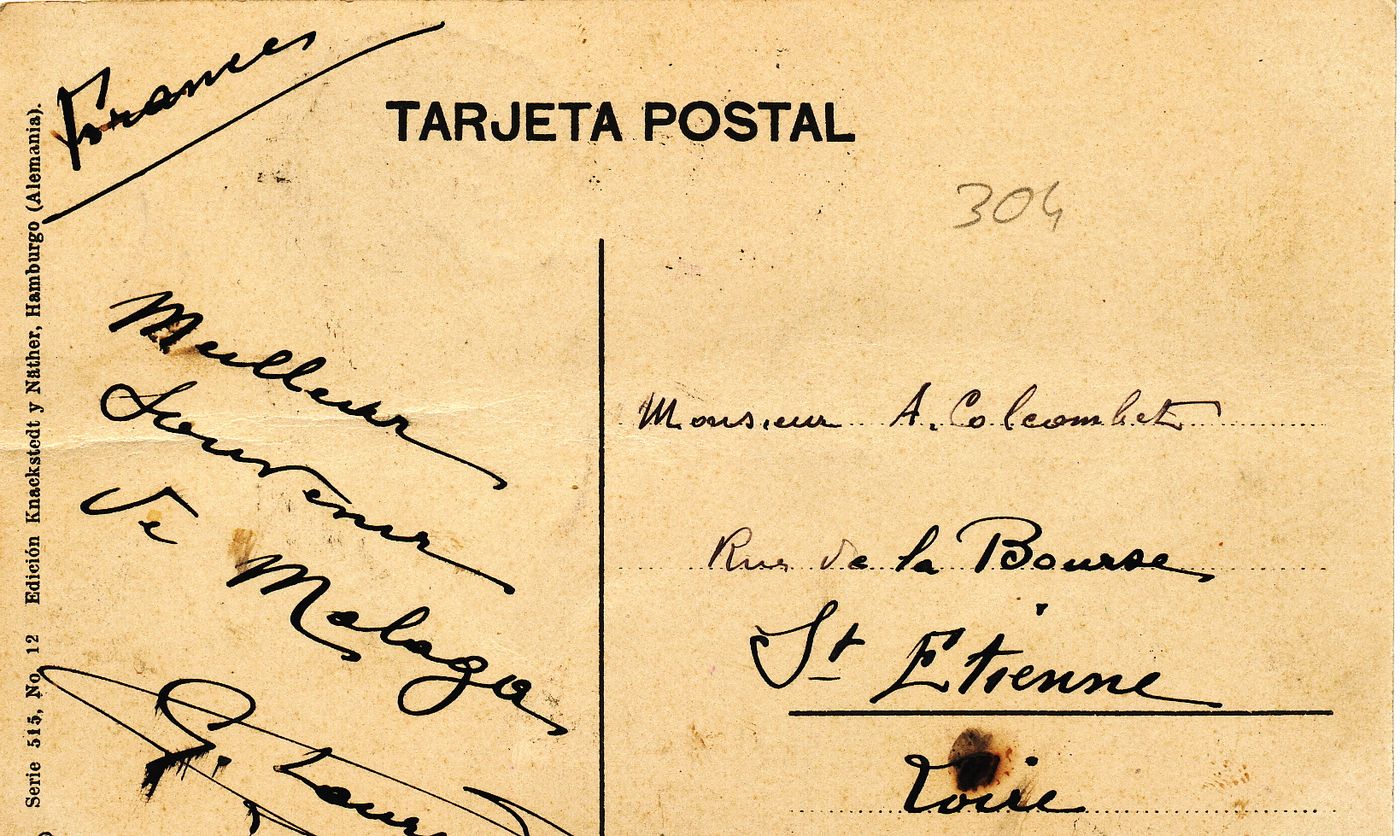 Francia
TARJETA POSTAL
304
Serie 515, No. 12 Edición Knackstedt y Näther, Hamburgo (Alemania).
Meilleur
Souvenir
de Malaga
G.
Monsieur A. Colcombet
Rue de la Bourse
St Etienne
Loire